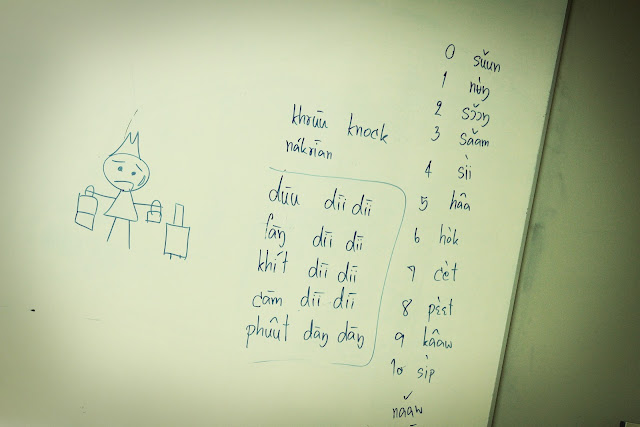 khrūu knock
nákrīan
dūu dīi dīi
fāŋ dīi dīi
khít dīi dīi
cām dīi dīi
phûut dāŋ dāŋ
0 sǔun
1 nʉ̀ŋ
2 sɔ̌ɔŋ
3 sǎam
4 sìi
5 hâa
6 hòk
7 cèt
8 pɛ̀ɛt
9 kâaw
10 sìp
nǎaw